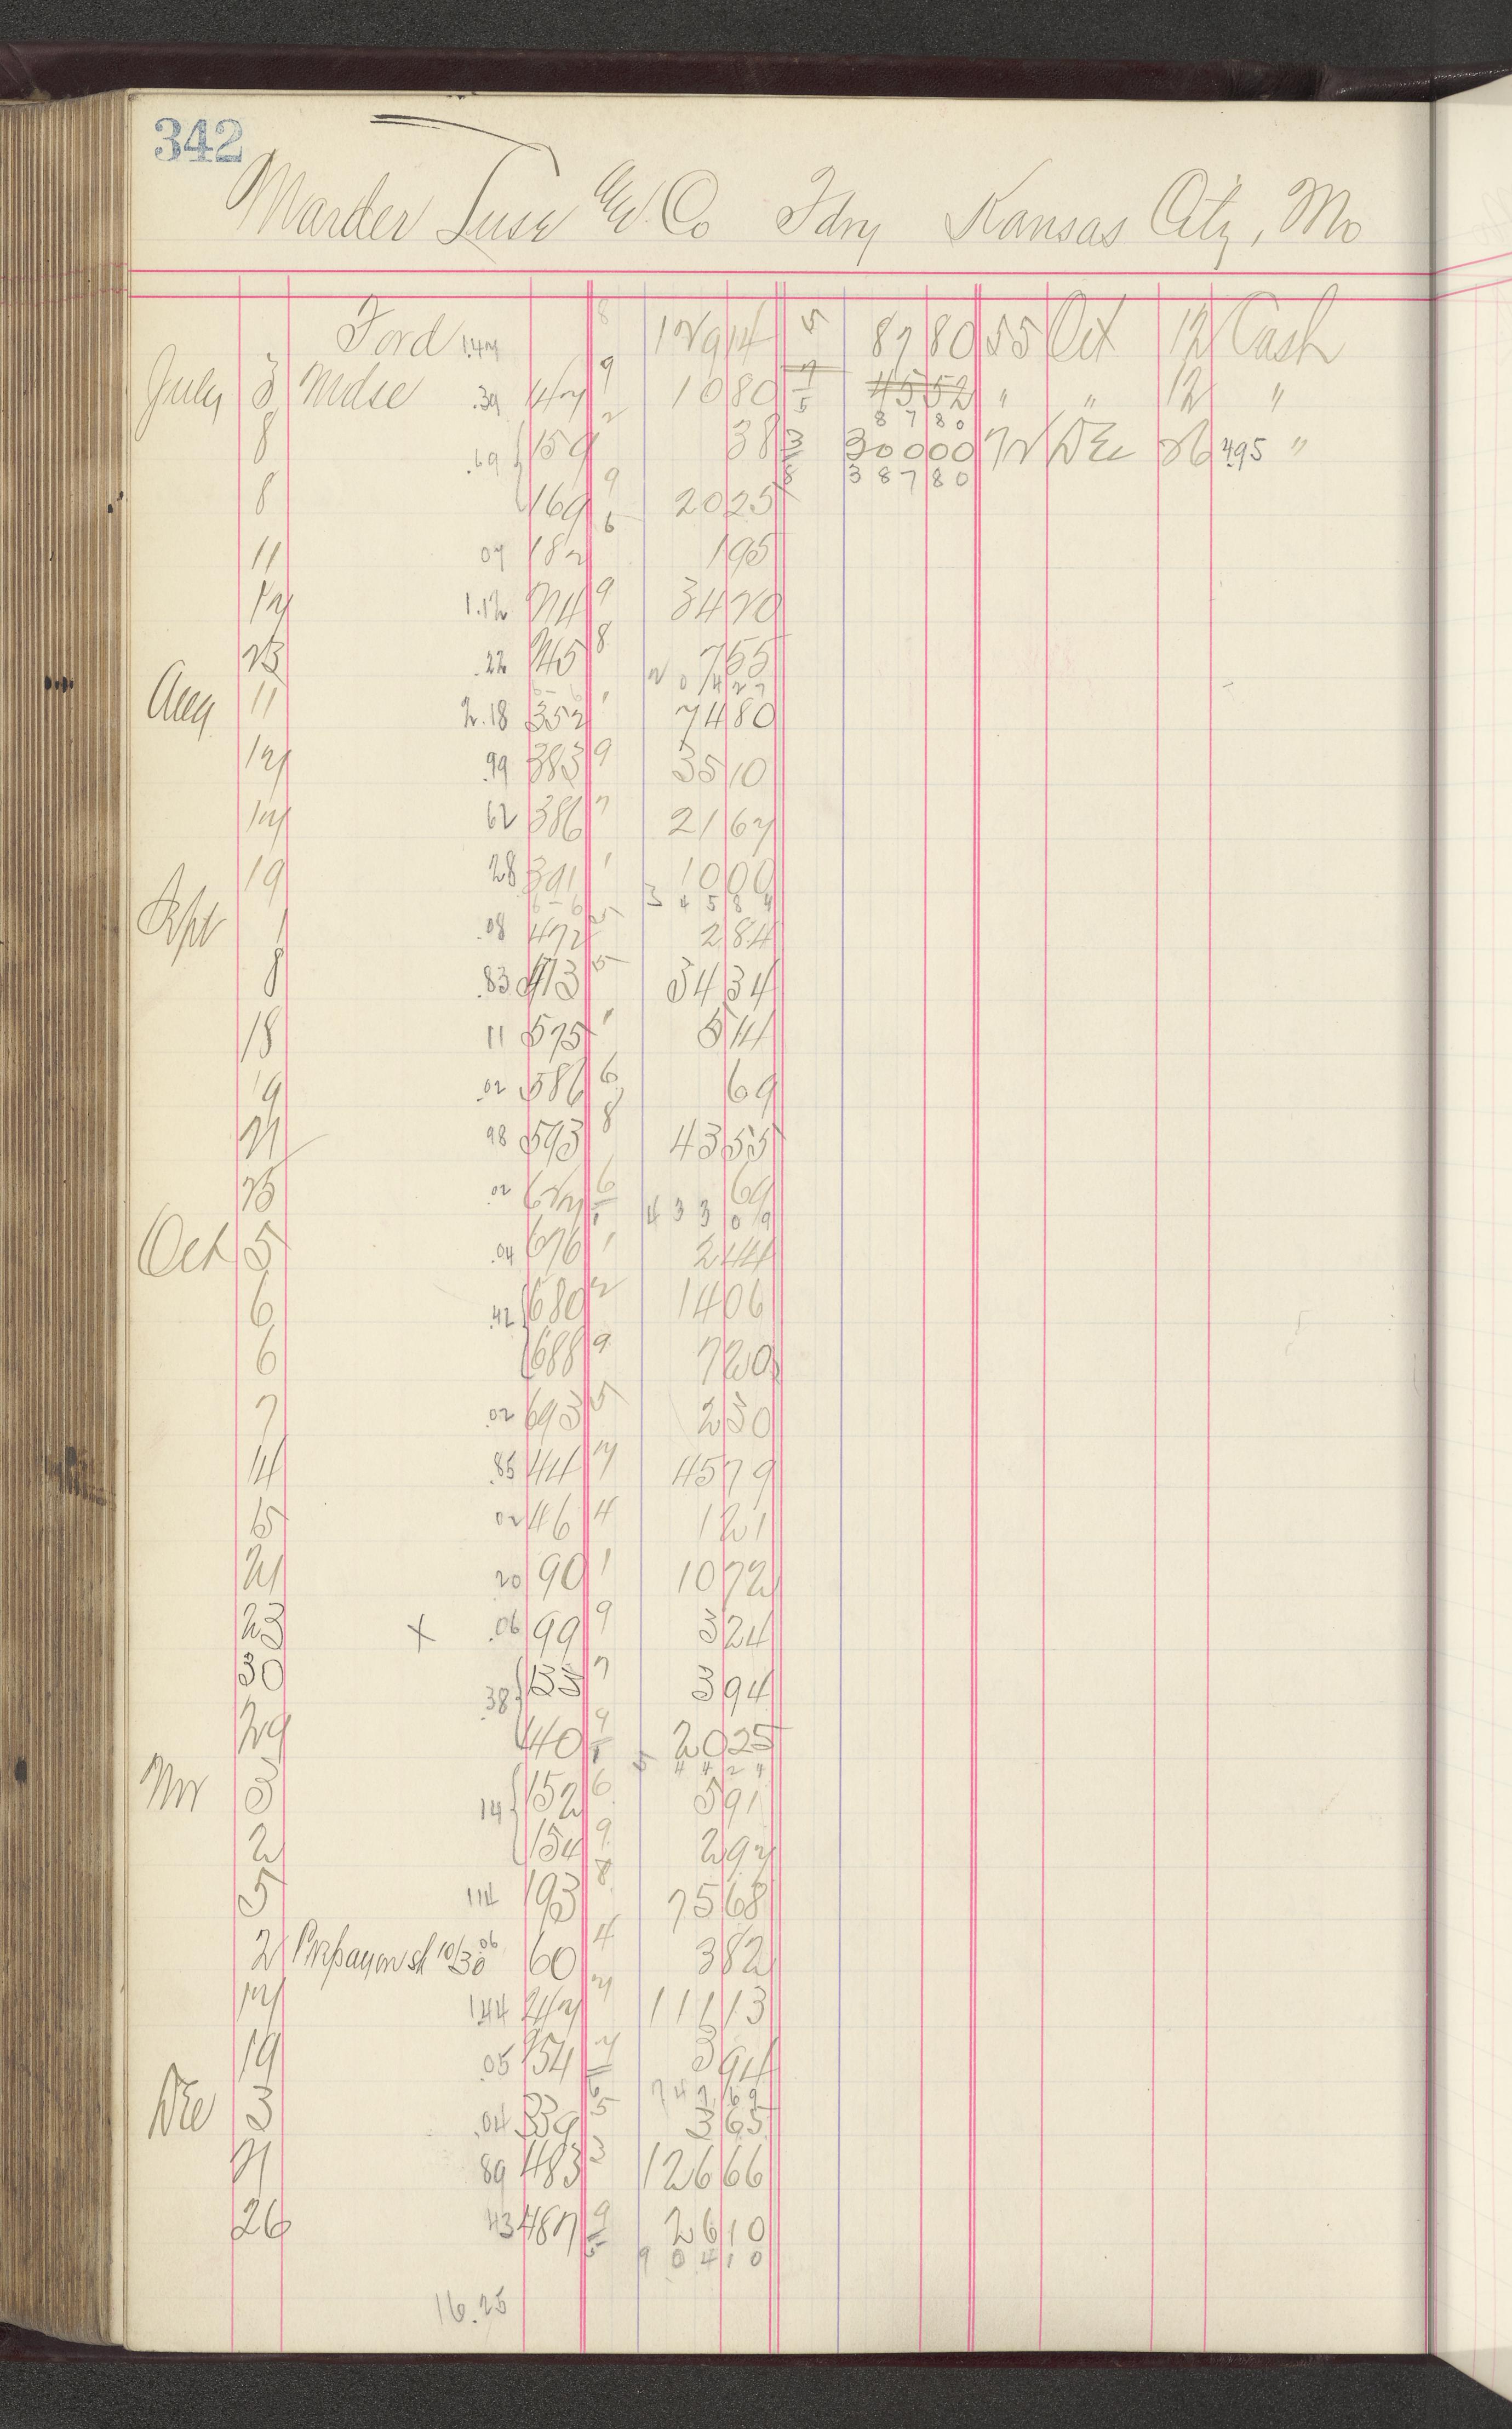 342
Marder Luse & Co Fdry Kansas City, Mo
Ford 1.47 8 129 14 5 87 80 55 Oct 12 Cash
July 3 Mdse .39 147 9 10 80 7 45 52 " " 12 "
5 87 80
8 .69 159 2 38 3 300 00 72 Dec 26 4.95 "
8 387 80
8 169 9 20 25
6
11 07 182 1 95
17 1.12 214 9 34 20
23 .22 245 8 7 55
2 0 4 2 7
Aug 11 2.18 352 1 74 80
17 .99 383 9 35 10
17 62 386 7 21 67
19 28 391 1 10 00
3 4 5 8 4
Sept 1 .08 472 5 2 84
8 .83 513 5 34 34
18 11 575 1 5 14
19 .02 586 6 69
21 98 593 8 43 55
25 .02 627 6 69
4 3 3 0 9
Oct 5 .04 676 1 2 44
6 .42 680 2 14 06
6 688 9 7 20
7 .02 693 5 2 30
14 .85 44 7 45 79
15 02 46 4 1 21
21 20 90 1 10 72
23 x .06 99 9 3 24
30 .38 135 7 3 94
29 140 9 20 25
5 4 4 2 4
Nov 3 14 152 6 5 91
2 154 9 2 97
5 114 193 8 75 68
2 Prepay on sh 10/30 06 60 4 3 82
17 144 247 7 111 13
19 .05 254 7 3 94
7 4 7 6 9
Dec 3 .04 339 5 3 65
21 89 483 3 126 66
26 43 487 9 26 10
5 9 0 4 1 0
16.25